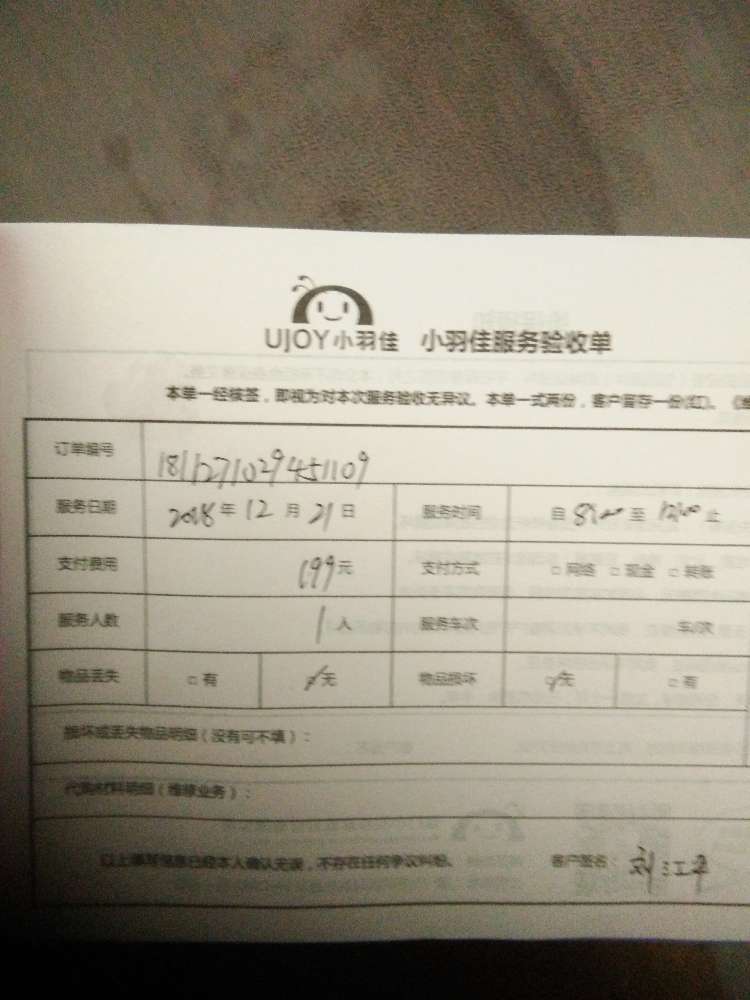 UJOY小羽佳 小羽佳服务验收单
本单一经核签，即视为对本次服务验收无异议。本单一式两份，客户留存一份(红)。
订单编号 1811271029451109
服务日期 2018年12月21日 服务时间 自8:00至12:00止
支付费用 199元 支付方式 □网络 □现金 □转账
服务人数 1人 服务车次 车/次
物品丢失 □有 ☑无 物品损坏 ☑无 □有
损坏或丢失物品明细（没有可不填）：
代购材料明细（维修业务）：
以上填写信息已经本人确认无误，不存在任何争议纠纷。 客户签名：刘江平